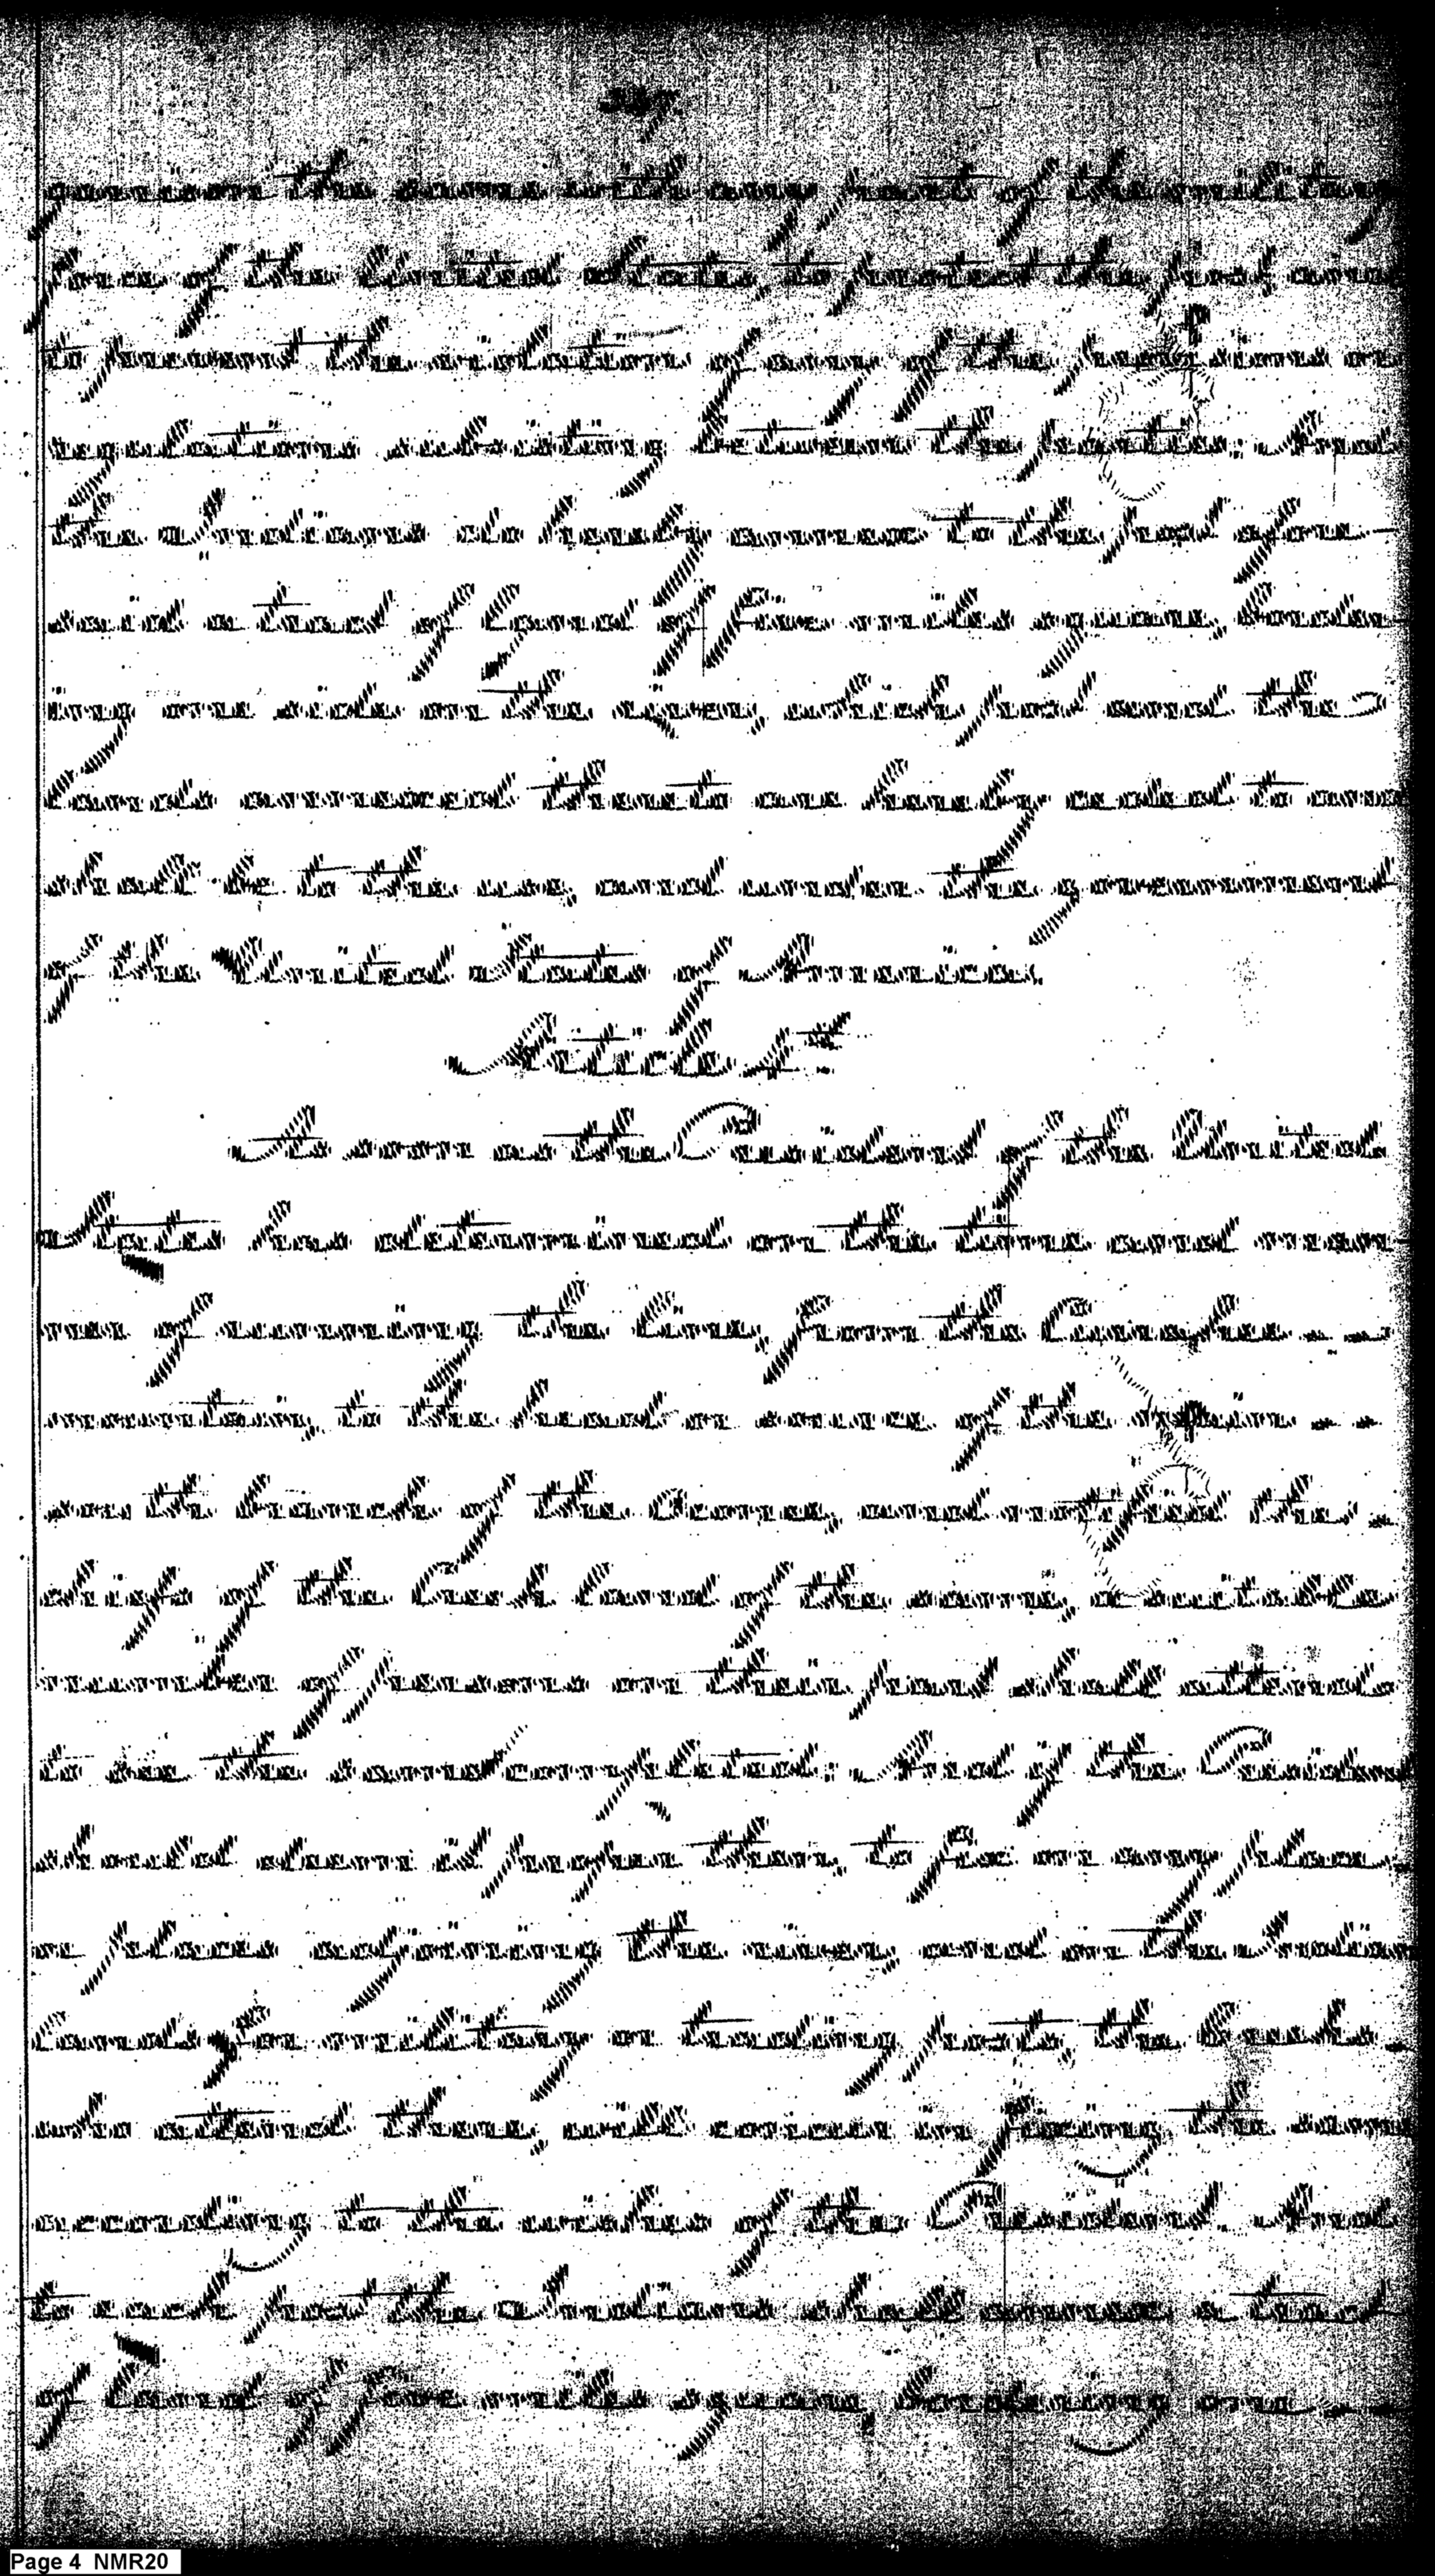 garrison the same with any part of the military
force of the United States, to protect the post, and
to prevent the violation of any of the provisions or
regulations subsisting between the parties: And
the Indians do hereby annex to the post afore-
said a tract of land of five miles square, border-
ing one side on the river, which post and the
lands annexed thereto are hereby ceded to and
shall be to the use, and under the government
of the United States of America.
Article 5th
As soon as the President of the United
States has determined on the time and man-
ner of running the line, from the Currahee
mountain, to the head or source of the main
south branch of the Oconee, and notified the
chiefs of the Creek land of the same, a suitable
number of persons on their part shall attend
to see the same completed: And if the President
should deem it proper then, to fix on any place
or places adjoining the river, and on the Indian
lands for military or trading posts, the Creeks
who attend there, will concur in fixing the same
according to the wishes of the President. And
to each post the Indians shall annex a tract
of land of five miles square, bordering one
Page 4 NMR20